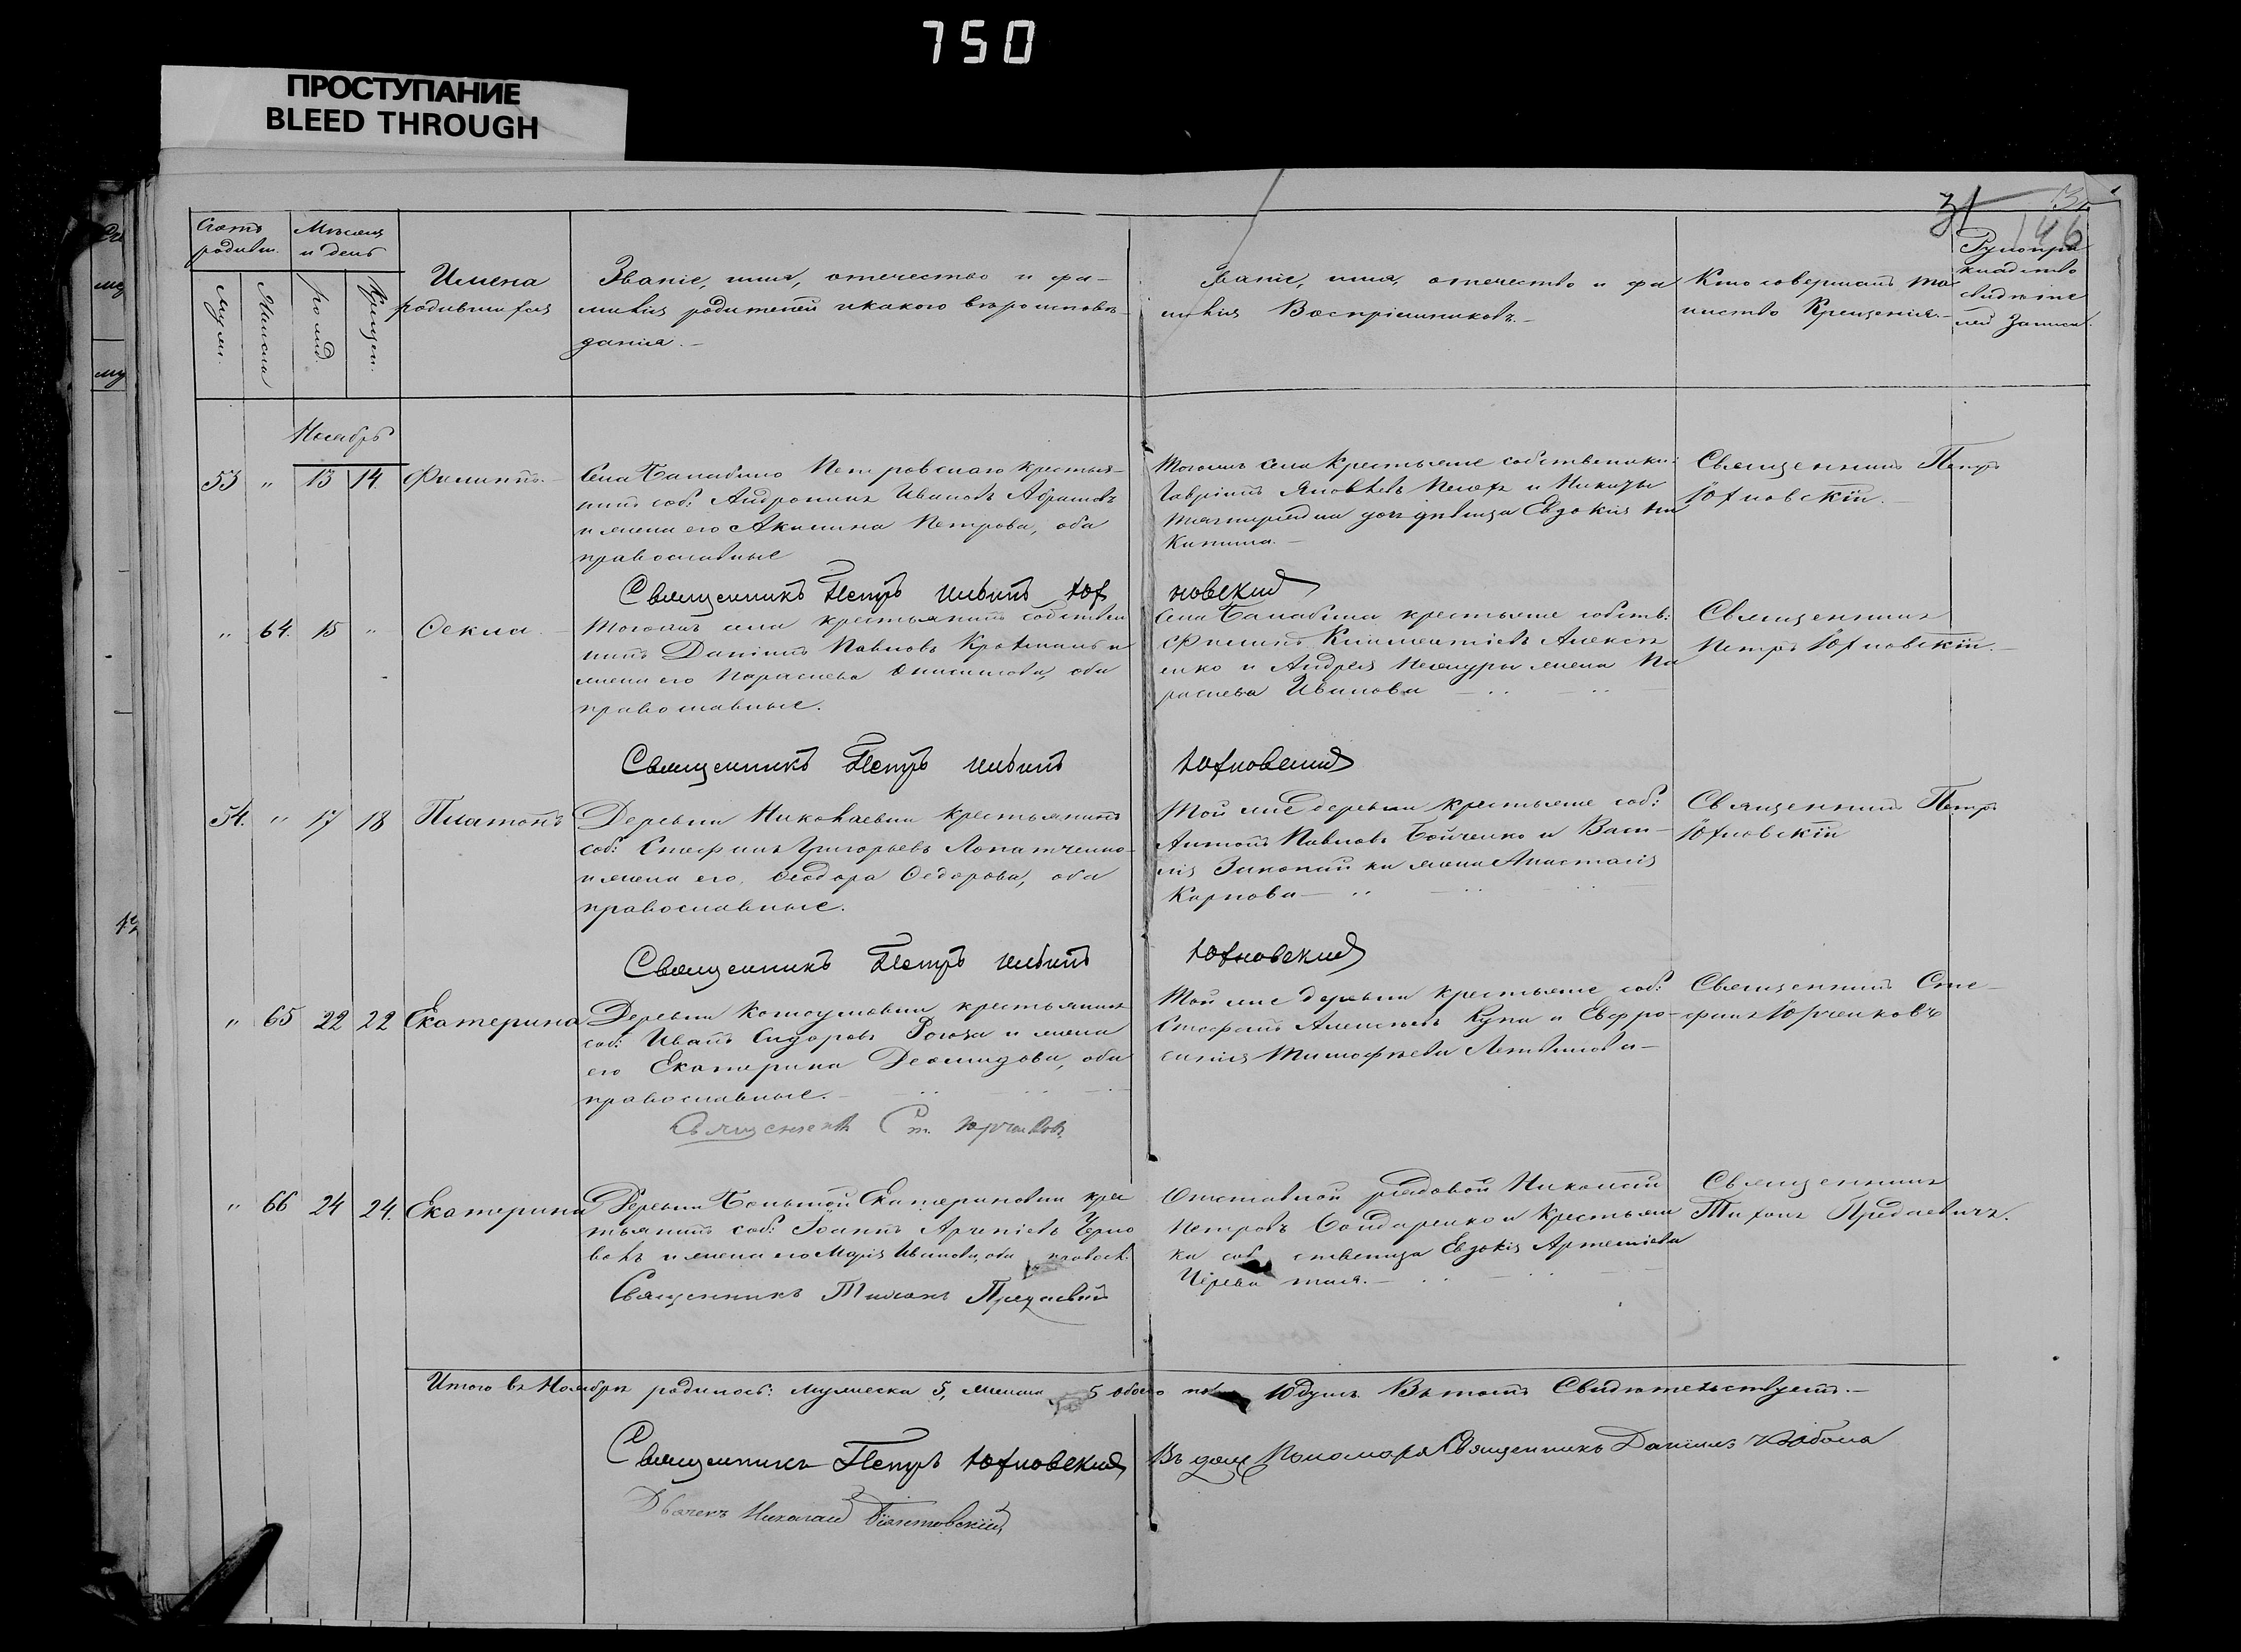 750
ПРОСТУПАНИЕ
BLEED THROUGH
31
146
Счетъ родивш.
Мѣсяцъ и день
Имена родившихся
Званіе, имя, отечество и фа-
милія родителей и какого вѣроисповѣ-
данія.-
Званіе, имя, отечество и фа
милія Воспріемниковъ.-
Кто совершалъ та
инство Крещенія.-
Рукопри
кладство
свидѣте
лей Записи.
Муж.
Женска
рожд.
Крещен.
Ноябрь
53 " 13 14. Филиппъ.-
Села Балабино Петровскаго крестья-
нинъ соб: Андроникъ Ивановъ Абрамовъ
и жена его Акилина Петрова, оба
православные
Тогожъ села крестьяне собственики:
Гавріилъ Яковлевъ и Никиты
дочь дѣвица Евдокія Ни
китина.-
Священникъ Петръ
Юхновскій.-
Священникъ Петръ Ильинъ Юхновскій
" 64. 15 " Ѳекла.-
Тогожъ села крестьянинъ собствен
никъ Даніилъ Павловъ и
жена его Параскева Онисимова, оба
православные.
Села Балабина крестьяне собств:
Филипъ Климентіевъ Алексѣ
енко и Андрея жена Па
раскева Иванова
Священникъ
Петръ Юхновскій.-
Священникъ Петръ Ильинъ Юхновскій
54. " 17 18 Платонъ
Деревни Николаевки крестьянинъ
соб: Стефанъ Григорьевъ Лопатченко
и жена его, Ѳеодора Ѳедорова, оба
православные.
Той же деревни крестьяне соб:
Антонъ Павловъ Бойченко и Васи-
лія жена Анастасія
Карпова
Священникъ Петръ
Юхновскій
Священникъ Петръ Ильинъ Юхновскій
" 65 22 22 Екатерина
Деревни крестьянинъ
соб: Иванъ Сидоровъ Рогоза и жена
его Екатерина Деомидова, оба
православные.-
Той же деревни крестьяне соб:
Стефанъ Алексѣевъ Купа и Евфро-
синія Тимофѣева Литвинова-
Священникъ Сте-
фанъ Юрченковъ
Священникъ Ст. Юрченковъ.
" 66 24 24. Екатерина
Деревни Большой Екатериновки крес
тьянинъ соб: Іоаннъ
и жена его Марія Иванова, оба правосл.
Отставной рядовой Николай
Петровъ Бондаренко и крестьян
ка собственица Евдокія Артеміева
Священникъ
Тихонъ Предаевичъ.
Священникъ Тихонъ Предаевичъ
Итого въ Ноябрѣ родилось: мужеска 5, женска 5 обоего пола 10 душъ. Въ томъ Свидѣтельствуетъ.-
Священникъ Петръ Юхновскій
Въ долж Пономаря Священникъ Даніилъ
Дьячекъ Николай